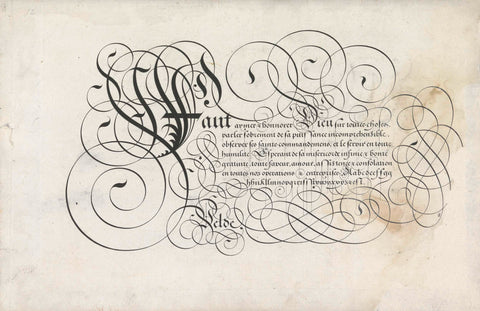 12
Faut aymer & honnorer Dieu sur toutes choses,
parler sobrement de sa puissance incomprehensible,
observer ses saints commandemens, et le servir en toute
humilité. Esperant de sa misericorde infinie & bonté
gratuite, toute faveur, amour, assistence & consolation
en toutes nos operations & entreprises. Aabcdeffgg
Velde.